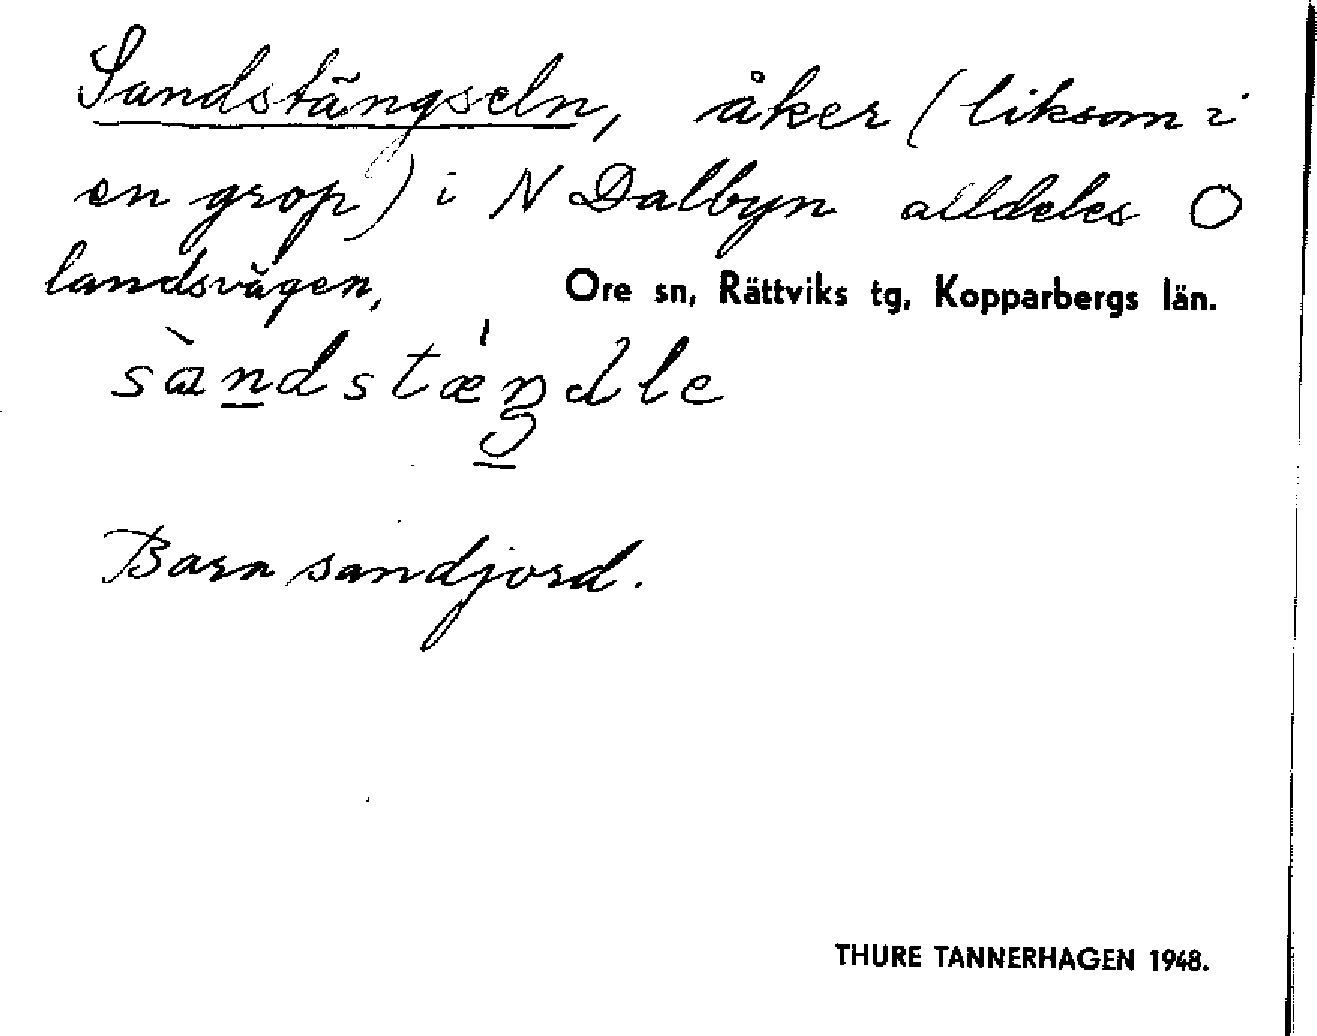 Sandstängseln, åker (liksom i
en grop) i N Dalbyn alldeles O
landsvägen, Ore sn, Rättviks tg, Kopparbergs län.
Bara sandjord.
THURE TANNERHAGEN 1948.